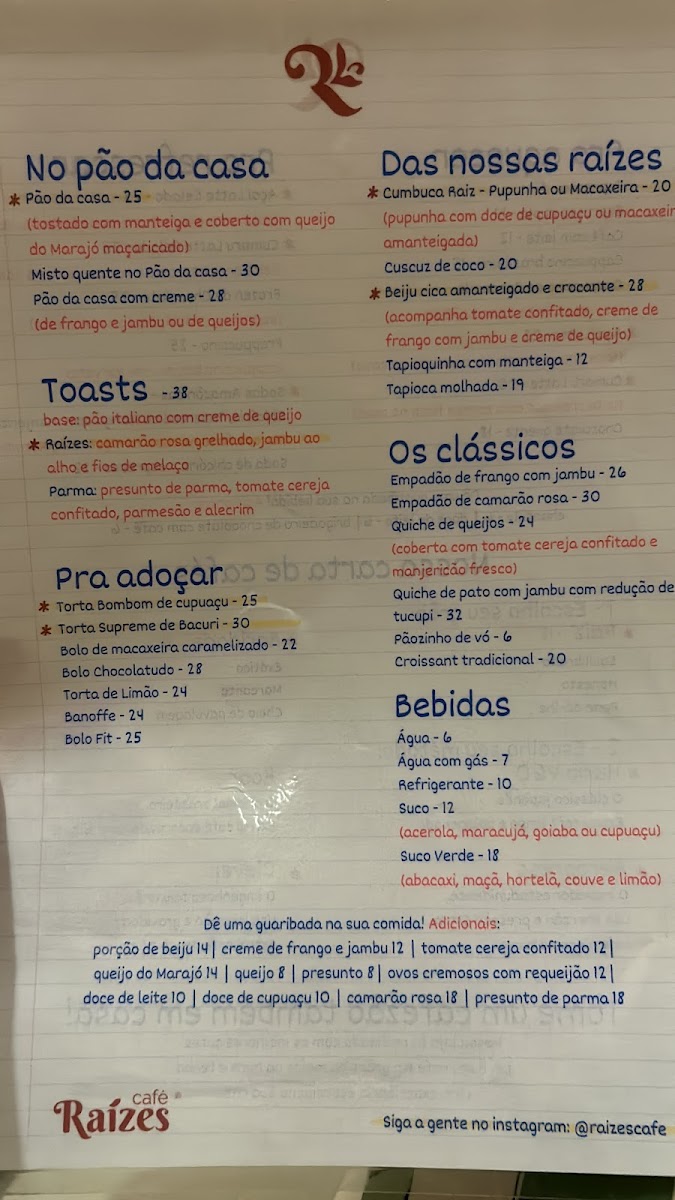 No pão da casa
* Pão da casa - 25
(tostado com manteiga e coberto com queijo
do Marajó maçaricado)
Misto quente no Pão da casa - 30
Pão da casa com creme - 28
(de frango e jambu ou de queijos)
Toasts - 38
base: pão italiano com creme de queijo
* Raízes: camarão rosa grelhado, jambu ao
alho e fios de melaço
Parma: presunto de parma, tomate cereja
confitado, parmesão e alecrim
Pra adoçar
* Torta Bombom de cupuaçu - 25
* Torta Supreme de Bacuri - 30
Bolo de macaxeira caramelizado - 22
Bolo Chocolatudo - 28
Torta de Limão - 24
Banoffe - 24
Bolo Fit - 25
Das nossas raízes
* Cumbuca Raiz - Pupunha ou Macaxeira - 20
(pupunha com doce de cupuaçu ou macaxeir
amanteigada)
Cuscuz de coco - 20
* Beiju cica amanteigado e crocante - 28
(acompanha tomate confitado, creme de
frango com jambu e creme de queijo)
Tapioquinha com manteiga - 12
Tapioca molhada - 19
Os clássicos
Empadão de frango com jambu - 26
Empadão de camarão rosa - 30
Quiche de queijos - 24
(coberta com tomate cereja confitado e
manjericão fresco)
Quiche de pato com jambu com redução de
tucupi - 32
Pãozinho de vó - 6
Croissant tradicional - 20
Bebidas
Água - 6
Água com gás - 7
Refrigerante - 10
Suco - 12
(acerola, maracujá, goiaba ou cupuaçu)
Suco Verde - 18
(abacaxi, maçã, hortelã, couve e limão)
Dê uma guaribada na sua comida! Adicionais:
porção de beiju 14 | creme de frango e jambu 12 | tomate cereja confitado 12 |
queijo do Marajó 14 | queijo 8 | presunto 8 | ovos cremosos com requeijão 12 |
doce de leite 10 | doce de cupuaçu 10 | camarão rosa 18 | presunto de parma 18
café
Raízes
Siga a gente no instagram: @raizescafe